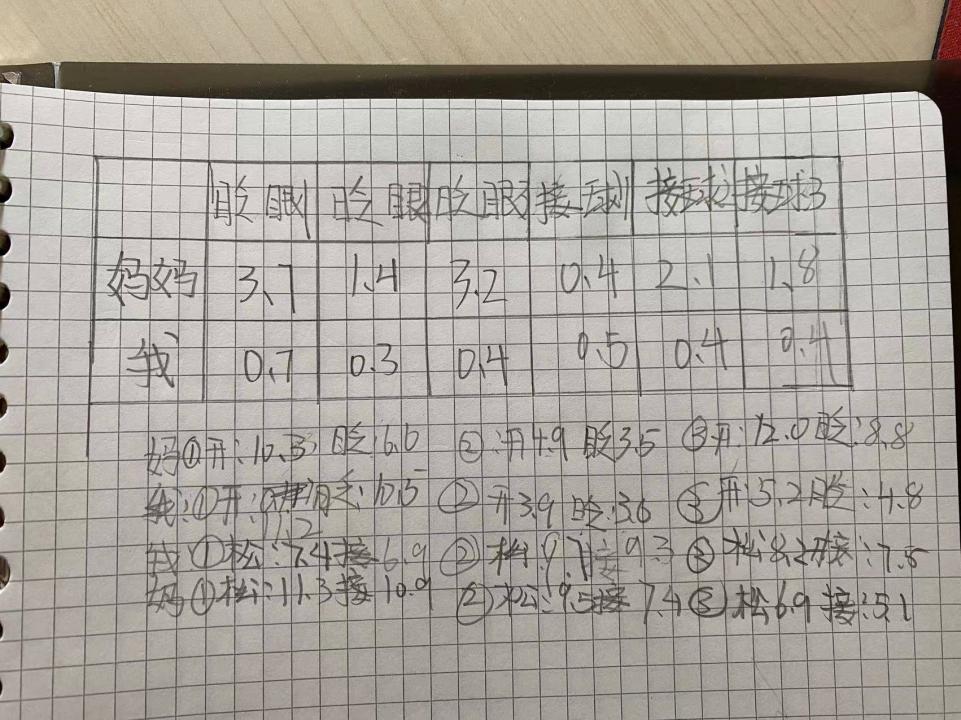 眨眼1 眨眼 眨眼3 接球1 接球2 接球3
妈妈 3.7 1.4 3.2 0.4 2.1 1.8
我 0.7 0.3 0.4 0.5 0.4 0.4
妈①开:10.3 眨:6.6 ②:开4.9 眨3.5 ③开:12.0眨:8.8
我:①开: 11.2 眨:10.5 ② 开3.9 眨:3.6 ③开:5.2眨:4.8
我①松:7.4接6.9 ② 松:9.7接9.3 ③ 松8.2接:7.8
妈①松:11.3接10.9 ②松:9.5接7.4 ③松6.9接:5.1